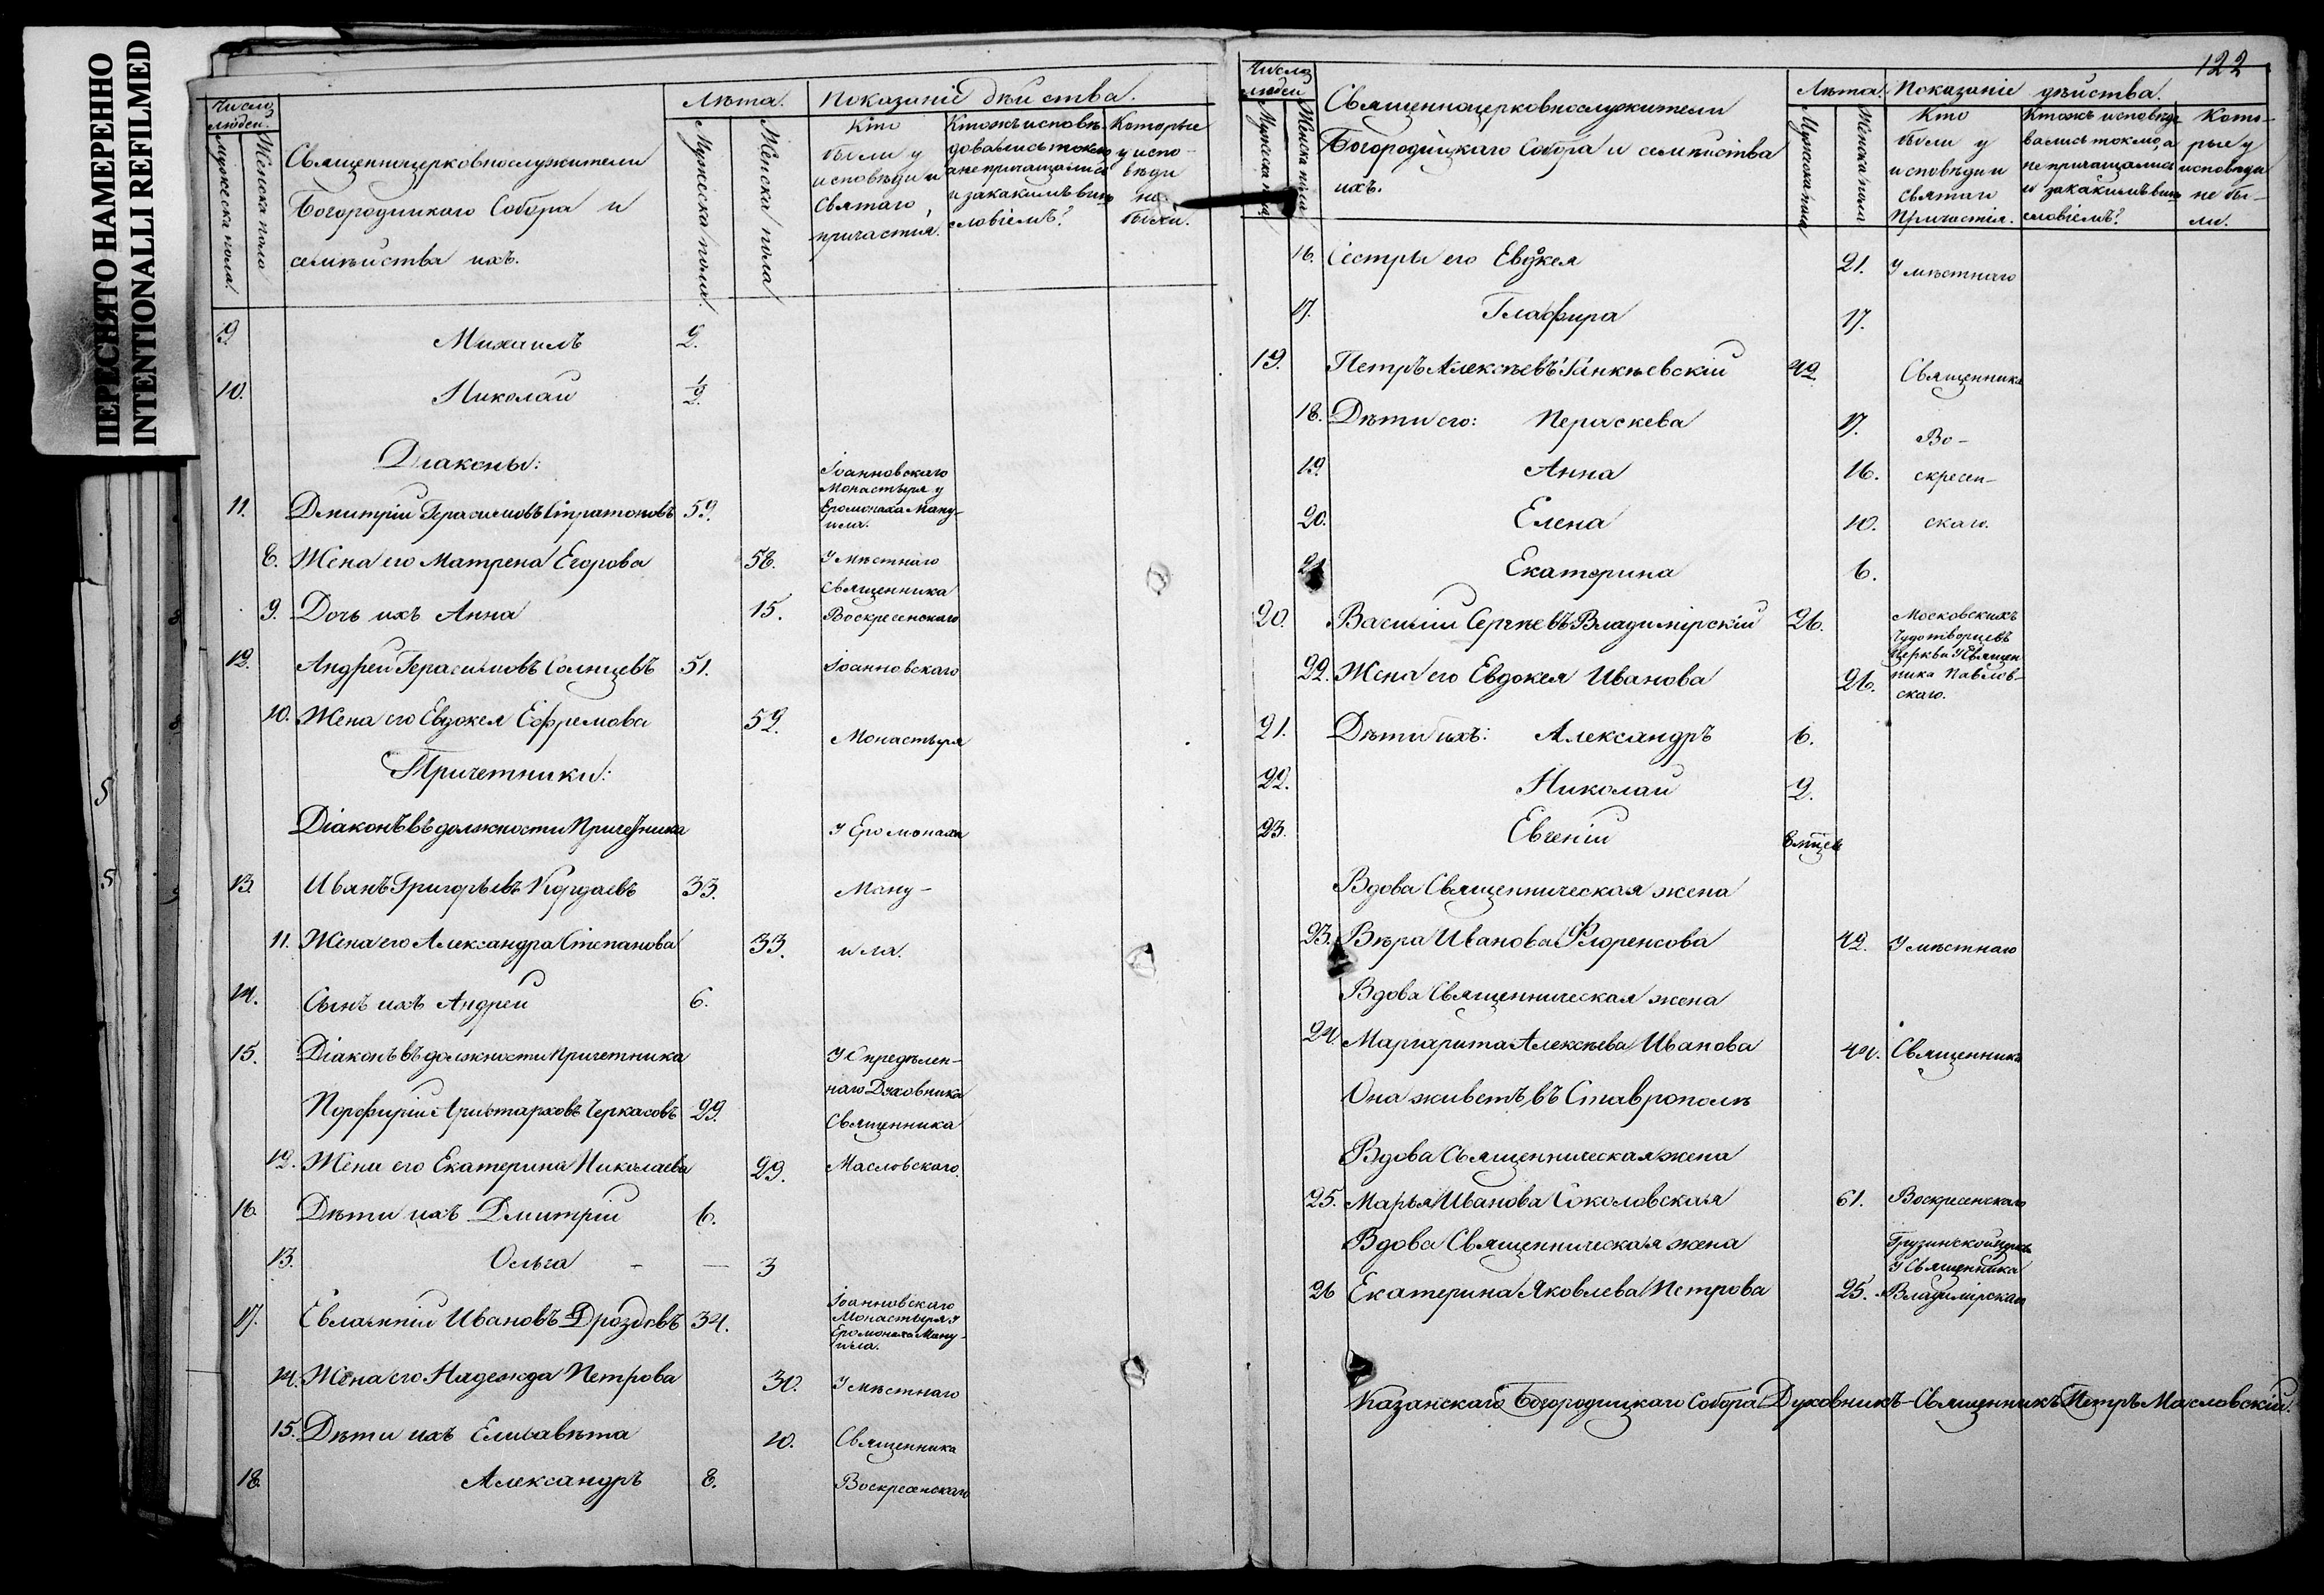 ПЕРЕСНЯТО НАМЕРЕННО
INTENTIONALLI REFILMED
Число людей.
Мужеска пола.
Женска пола
Священноцерковнослужители
Богородицкаго Собора и
семѣйства ихъ.
Лѣта.
Мужеска пола.
Женска пола
Показаніе дѣйства.
Кто
были у
исповѣди и
Святаго
причастія.
Ктожъ исповѣ-
довались токмо
а не причащались
и за какимъ вино
словіемъ?
Которые
у испо-
вѣди
не
были.
9. Михаилъ 2.
10. Николай 1/2.
Діаконы:
Іоанновскаго
Монастыря у
Еромонаха Ману-
ила.
11. Дмитрій Герасимовъ Стратоновъ 59.
8. Жена его Матрена Егорова 58. У мѣстнаго
Священника
9. Дочь ихъ Анна 15. Воскресенскаго
12. Андрей Герасимовъ Солнцевъ 51. Іоанновскаго
10. Жена его Евдокея Ефремова 52.
Монастыря
Причетники:
Діаконъ въ должности Причетника У Еромонаха
13. Иванъ Григорьевъ Кордаевъ 33. Ману-
11. Жена его Александра Степанова 33. ила.
14. Сынъ ихъ Андрей 6.
15. Діаконъ въ должности Причетника У Опредѣлен-
наго Духовника
Порфирій Аристарховъ Черкасовъ 29. Священника
12. Жена его Екатерина Николаева 29. Масловскаго.
16. Дѣти ихъ Дмитрій 6.
13. Ольга - — 3
Іоанновскаго
Монастыря у
Еромонаха Ману-
ила.
17. Евлампій Ивановъ Дроздовъ 34.
14. Жена его Надежда Петрова 30. У мѣстнаго
15. Дѣти ихъ Елисавѣта 10. Священника
18. Александръ 8. Воскресенскаго
122
Число людей
Мужеска пола
Женска пола
Священноцерковнослужители
Богородицкаго Собора и семѣйства
ихъ.
Лѣта.
Мужеска пола
Женска пола
Показаніе дѣйства.
Кто
были у
исповѣди и
Святаго
Причастія.
Ктожъ исповѣдо
вались токмо, а
не причащались
и за какимъ вино
словіемъ?
Кото-
рые у
исповѣди
не бы-
ли.
16. Сестры его Евдокея 21. У мѣстнаго
17. Глафира 17.
19. Петръ Алексѣевъ Ганкѣевскій 42 Священника
18. Дѣти его: Пераскева 17. Во-
19. Анна 16. скресен-
20. Елена 10. скаго.
21. Екатерина 6.
20. Василій Сергѣевъ Владимірскій 26. Московскихъ
Чудотворцевъ
Церкви У Священ
ника Павлов-
скаго.
22. Жена его Евдокея Иванова 26.
21. Дѣти ихъ: Александръ 6.
22. Николай 2.
23. Евгеній 8 мѣсцев
Вдова Священническая жена
23. Вѣра Иванова Флоренсова 42. У мѣстнаго
Вдова Священническая жена
24. Маргарита Алексѣева Иванова 44. Священника
Она живетъ въ Ставрополѣ
Вдова Священническая жена
25. Марья Иванова Соколовская 61. Воскресенскаго
Вдова Священническая жена Грузинской церк
У Священника
26 Екатерина Яковлева Петрова 25. Владимірскаго
Казанскаго Богородицкаго Собора Духовникъ-Священникъ Петръ Масловскій.